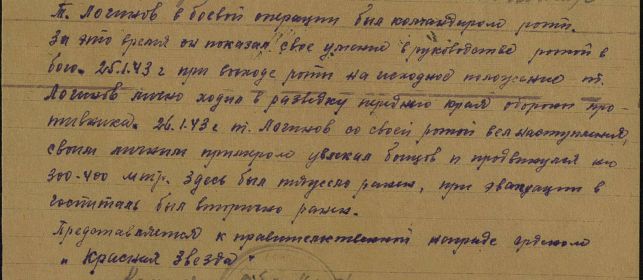 т. Логинов в боевой операции был командиром роты.
За это время он показал свое умение в руководстве ротой в
бою. 25.1.43 г при выходе роты на исходное положение т.
Логинов лично ходил в разведку переднего края обороны про-
тивника. 26.1.43 г т. Логинов со своей ротой вел наступления,
своим личным примером увлекал бойцов и продвинулся на
300-400 метр. Здесь был тяжело ранен, при эвакуации в
госпиталь был вторично ранен.
Представляется к правительственной награде орденом
"Красная Звезда"